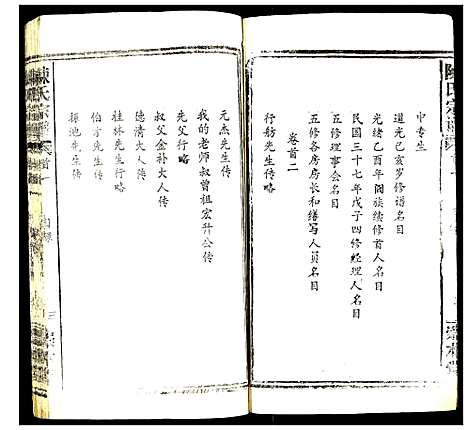 陳氏宗譜
中专生
道光己亥岁修谱名目
光绪己酉年阖族续修首人名目
民国三十七年戊子四修经理人名目
五修理事会名目
五修各房房长和缮写人员名目
卷首二
行舫先生传略
元杰先生传
我的老师叔曾祖宏升公传
先父行略
叔父金补大人传
德清大人传
桂林先生行略
伯才先生传
陳氏宗譜
卷首一
目録
三